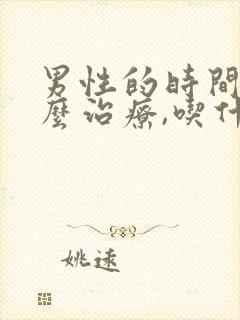 男性的時間
麼治療,喫什
姚遠